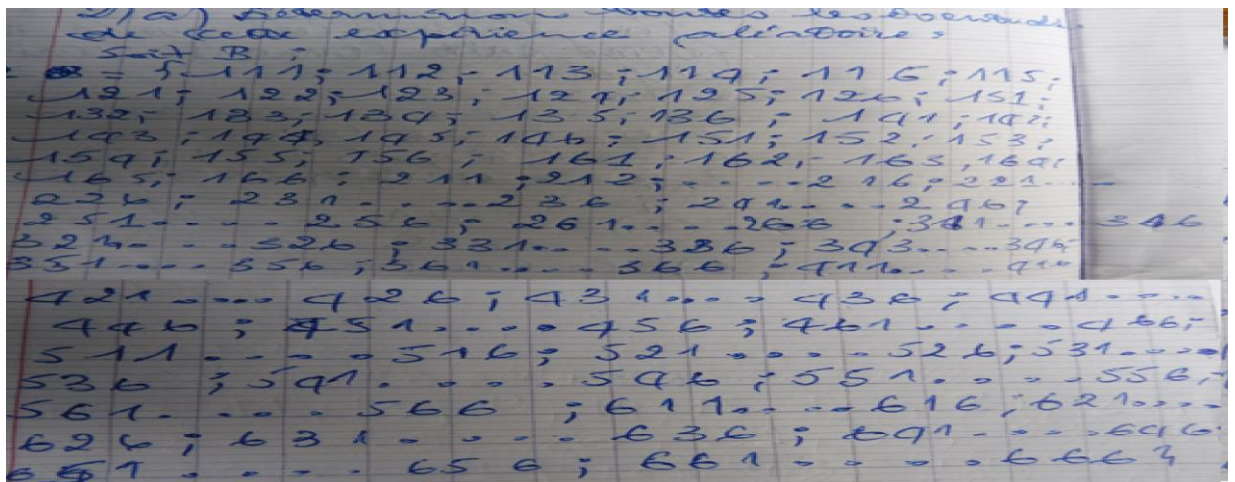 2) a) Déterminons toutes les éventualités
de cette expérience aléatoire :
Soit B ;
= { 111 ; 112 ; 113 ; 114 ; 116 ; 115 ;
121 ; 122 ; 123 ; 124 ; 125 ; 126 ; 131 ;
132 ; 133 ; 134 ; 135 ; 136 ; 141 ; 142 ;
143 ; 144 ; 145 ; 146 ; 151 ; 152 ; 153 ;
154 ; 155 ; 156 ; 161 ; 162 ; 163 ; 164 ;
165 ; 166 ; 211 ; 212 ; ..... 216 ; 221 .....
226 ; 231 ..... 236 ; 241 .... 246 ;
251 ..... 256 ; 261 ..... 266 ; 341 .... 346
321 ..... 326 ; 331 .... 336 ; 343 .... 346
351 .... 356 ; 361 .... 366 ; 411 .... 416
421 ..... 426 ; 431 .... 436 ; 441 ....
446 ; 451 .... 456 ; 461 ..... 466 ;
511 ..... 516 ; 521 ..... 526 ; 531 .....
536 ; 541 ..... 546 ; 551 ..... 556 ;
561 ..... 566 ; 611 .... 616 ; 621 ....
626 ; 631 ..... 636 ; 641 ..... 646
651 ..... 656 ; 661 ..... 666 }